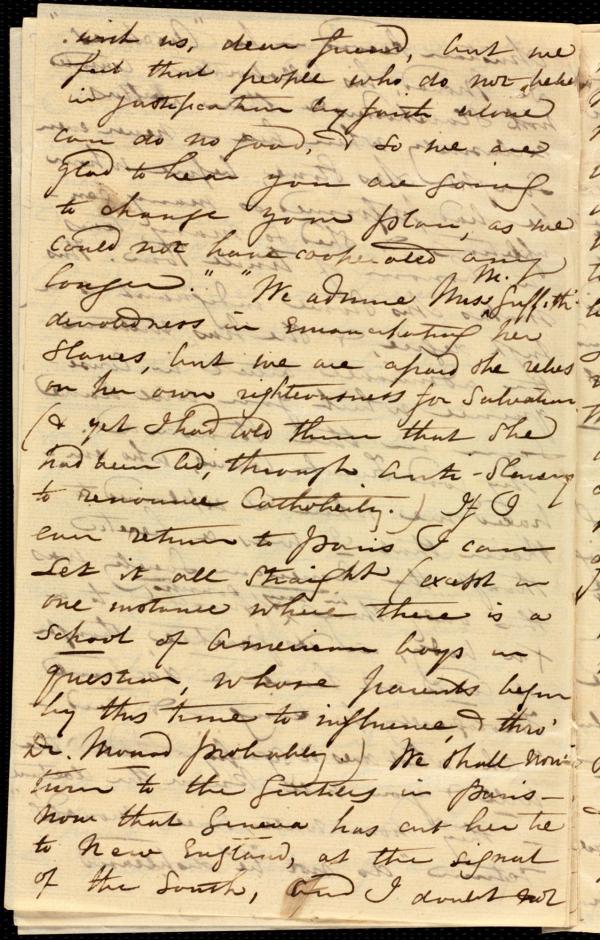 with us, dear friend, but we
feel that people who do not belie
in justification by faith alone
can do no good, & so we are
glad to hear you are going
to change your plan, as we
could not have cooperated any
longer." "We admire Miss M. Griffith's
devotedness in Emancipating her
Slaves, but we are afraid she relies
on her own righteousness for Salvation
(& yet I had told them that she
had been led, through Anti-Slavery
to renounce Catholicity.) If I
ever return to Paris I can
set it all straight (except in
one instance where there is a
School of American boys in
question, whose parents begin
by this time to influence, & thro'
Dr. Monod probably) We shall now
turn to the Gentiles in Paris—
Now that Geneva has cut her tie
to New England, at the signal
of the South, and I doubt not